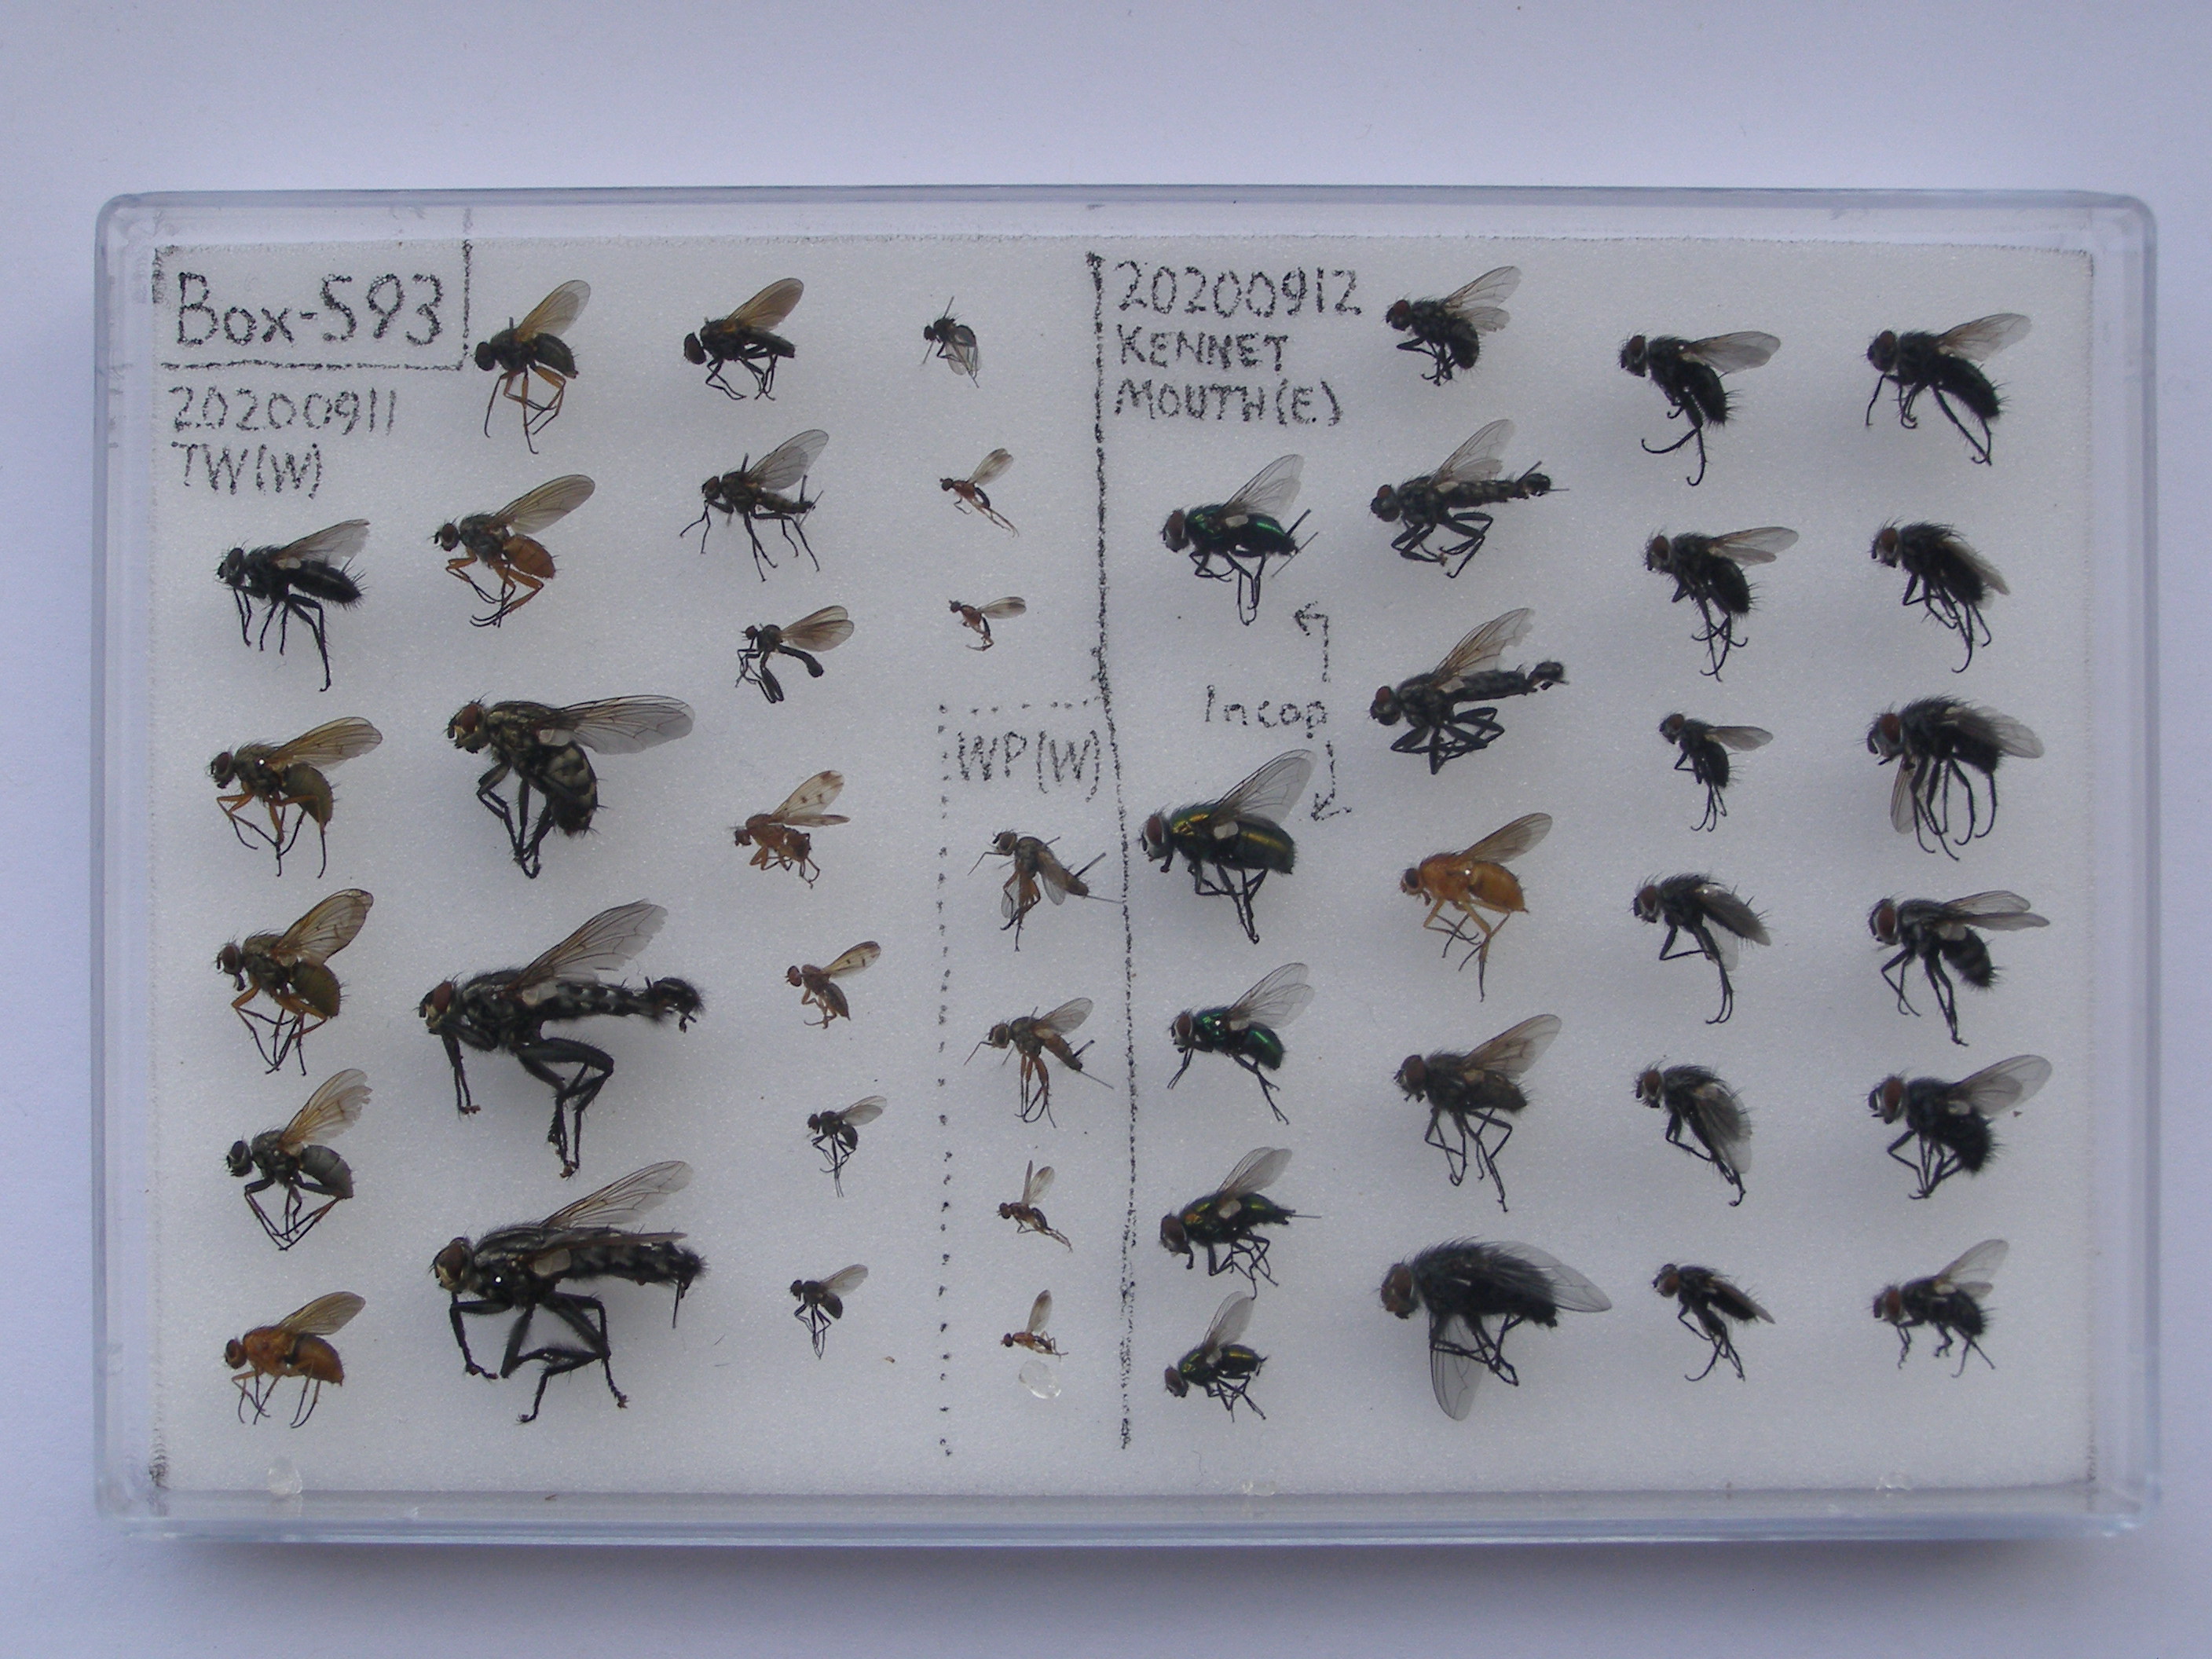 Box-593
20200911
TW(W)
WP(W)
20200912
KENNET
MOUTH(E)
Incop